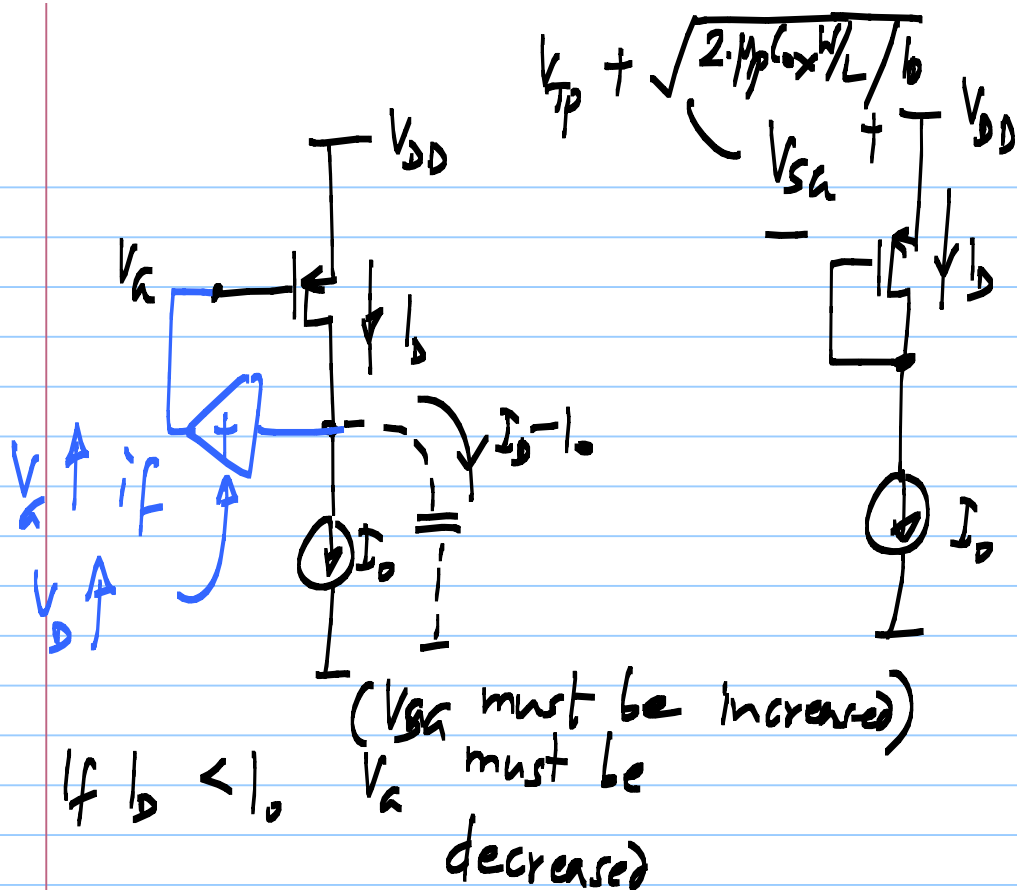 V_Tp + √(2·μpCox W/L / I0
V_DD
V_SG
+
V_DD
−
V_G
I_D
I_D
+
I_D − I0
V_G ↑ if
V_D ↑
I0
I0
(V_SG must be increased)
If I_D < I0 V_G must be
decreased